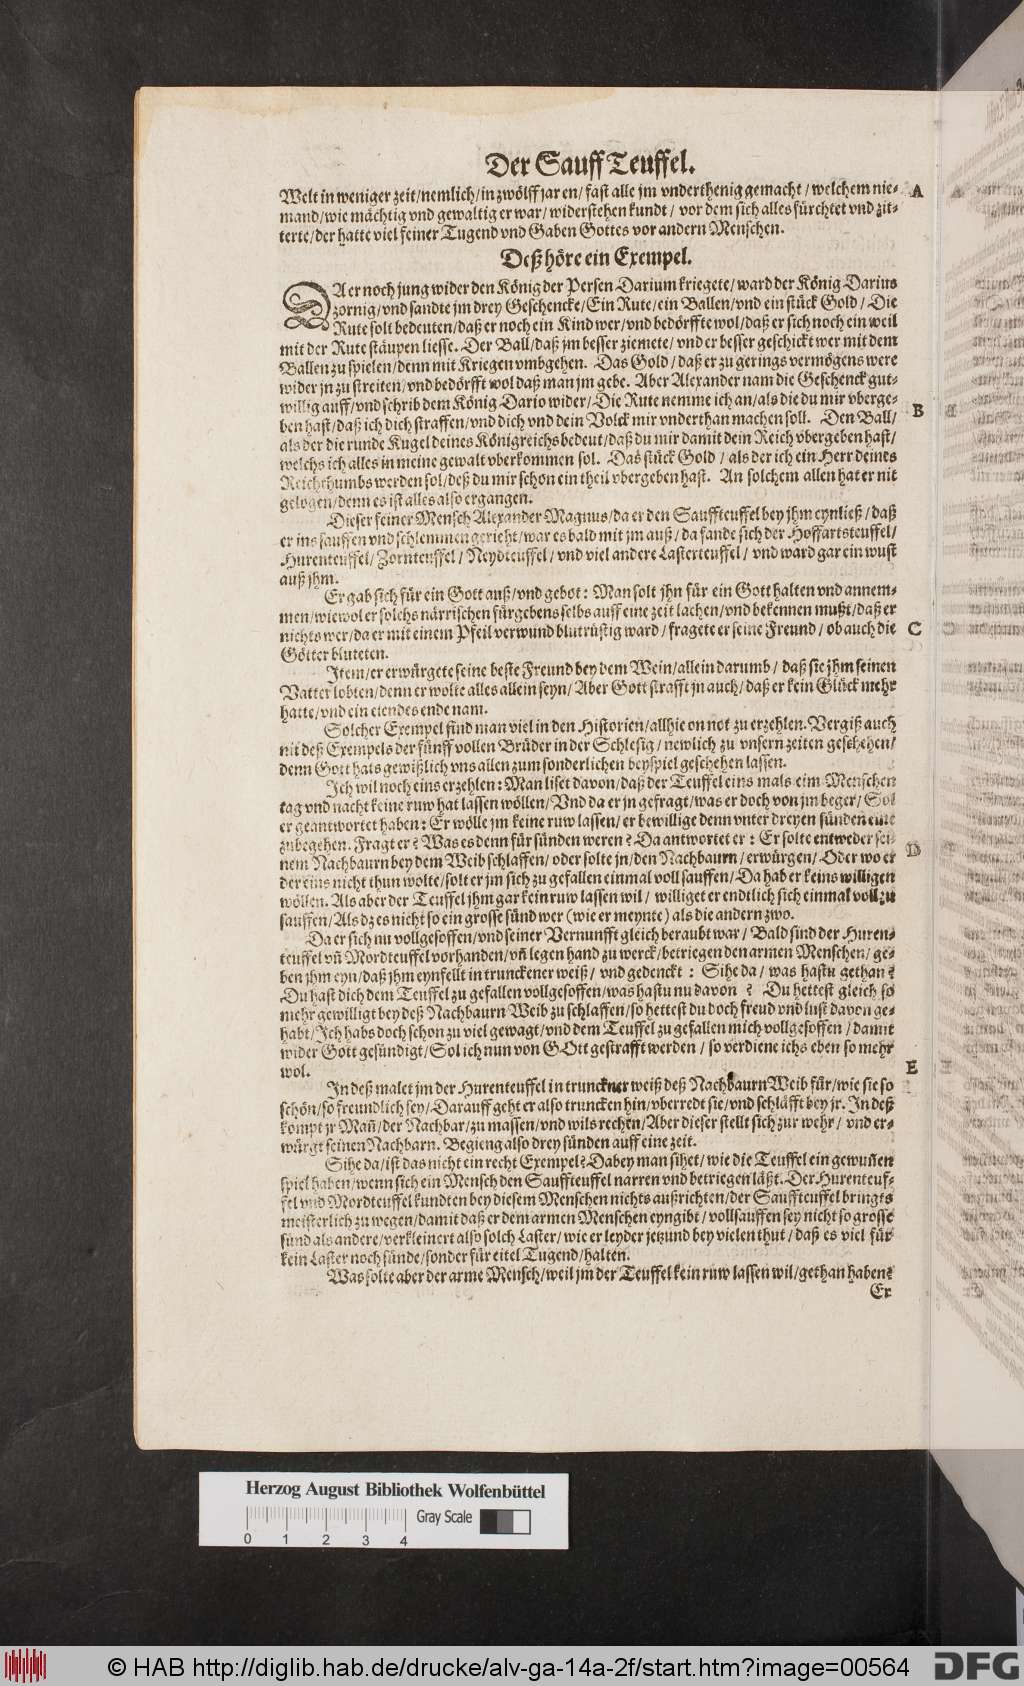 Der Sauff Teuffel.
Welt in weniger zeit/nemlich/in zwölff jaren/fast alle jm vnderthenig gemacht/welchem nie-
A
mand/wie mächtig vnd gewaltig er war/widerstehen kundt/vor dem sich alles fürchtet vnd zit-
terte/der hatte viel feiner Tugend vnd Gaben Gottes vor andern Menschen.
Deß höre ein Exempel.
DA er noch jung wider den König der Persen Darium kriegete/ward der König Darius
zornig/vnd sandte jm drey Geschencke/Ein Rute/ein Ballen/vnd ein stück Gold/Die
Rute solt bedeuten/daß er noch ein Kind wer/vnd bedörffte wol/daß er sich noch ein weil
mit der Rute stäupen liesse. Der Ball/daß jm besser ziemete/vnd er besser geschickt wer mit dem
Ballen zu spielen/denn mit Kriegen vmbgehen. Das Gold/daß er zu gerings vermögens were
wider jn zu streiten/vnd bedörfft wol daß man jm gebe. Aber Alexander nam die Geschenck gut-
willig auff/vnd schrib dem König Dario wider/Die Rute nemme ich an/als die du mir vberge-
B
ben hast/daß ich dich straffen/vnd dich vnd dein Volck mir vnderthan machen soll. Den Ball/
als der die runde Kugel deines Königreichs bedeut/daß du mir damit dein Reich vbergeben hast/
welchs ich alles in meine gewalt vberkommen sol. Das stück Gold/als der ich ein Herr deines
Reichthumbs werden sol/deß du mir schon ein theil vbergeben hast. An solchem allen hat er nit
gelogen/denn es ist alles also ergangen.
Dieser feiner Mensch Alexander Magnus/da er den Sauffteuffel bey jhm eynließ/daß
er ins sauffen vnd schlemmen gerieht/war es bald mit jm auß/da fande sich der Hoffartsteuffel/
Hurenteuffel/Zornteuffel/Neydteuffel/vnd viel andere Lasterteuffel/vnd ward gar ein wust
auß jhm.
Er gab sich für ein Gott auß/vnd gebot: Man solt jhn für ein Gott halten vnd annem-
men/wiewol er solchs närrischen fürgebens selbs auff eine zeit lachen/vnd bekennen mußt/daß er
nichts wer/da er mit einem Pfeil verwund blutrüstig ward/fragte er seine Freund/ob auch die
C
Götter bluteten.
Item/er erwürgete seine beste Freund bey dem Wein/allein darumb/daß sie jhm seinen
Vatter lobten/denn er wolte alles allein seyn/Aber Gott strafft jn auch/daß er kein Glück mehr
hatte/vnd ein elendes ende nam.
Solcher Exempel find man viel in den Historien/allhie on not zu erzehlen. Vergiß auch
nit deß Exempels der fünff vollen Brüder in der Schlesig/newlich zu vnsern zeiten geschehen/
denn Gott hats gewißlich vns allen zum sonderlichen beyspiel geschehen lassen.
Ich wil noch eins erzehlen: Man liset davon/daß der Teuffel eins mals eim Menschen
tag vnd nacht keine ruw hat lassen wöllen/Vnd da er jn gefragt/was er doch von jm beger/Sol
er geantwortet haben: Er wölle jm keine ruw lassen/er bewillige denn vnter dreyen sünden eine
zubegehen. Fragt er? Was es denn für sünden weren? Da antwortet er: Er solte entweder sei-
D
nem Nachbaurn bey dem Weib schlaffen/oder solte jn/den Nachbaurn/erwürgen/Oder wo er
der eins nicht thun wolte/solt er jm sich zu gefallen einmal voll sauffen/Da hab er keins willigen
wöllen. Als aber der Teuffel jhm gar kein ruw lassen wil/williget er endtlich sich einmal voll zu
sauffen/Als dz es nicht so ein grosse sünd wer (wie er meynte) als die andern zwo.
Da er sich nu vollgesoffen/vnd seiner Vernunfft gleich beraubt war/Bald sind der Huren-
teuffel vñ Mordteuffel vorhanden/vñ legen hand zu werck/betriegen den armen Menschen/ge-
ben jhm eyn/daß jhm eynfellt in trunckener weiß/vnd gedenckt: Sihe da/was hastu gethan?
Du hast dich dem Teuffel zu gefallen vollgesoffen/was hastu nu davon? Du hettest gleich so
mehr gewilligt bey deß Nachbaurn Weib zu schlaffen/so hettest du doch freud vnd lust davon ge-
habt/Ich habs doch schon zu viel gewagt/vnd dem Teuffel zu gefallen mich vollgesoffen/damit
wider Gott gesündigt/Sol ich nun von GOtt gestrafft werden/so verdiene ichs eben so mehr
E
wol.
In deß malet jm der Hurenteuffel in trunckner weiß deß Nachbaurn Weib für/wie sie so
schön/so freundlich sey/Darauff geht er also truncken hin/vberredt sie/vnd schläfft bey jr. In deß
kompt jr Mañ/der Nachbar/zu massen/vnd wils rechen/Aber dieser stellt sich zur wehr/vnd er-
würgt seinen Nachbarn. Begieng also drey sünden auff eine zeit.
Sihe da/ist das nicht ein recht Exempel? Dabey man sihet/wie die Teuffel ein gewuñen
spiel haben/wenn sich ein Mensch den Sauffteuffel narren vnd betriegen läßt. Der Hurenteuf-
fel vnd Mordteuffel kundten bey diesem Menschen nichts außrichten/der Sauffteuffel bringts
meisterlich zu wegen/damit daß er dem armen Menschen eyngibt/vollsauffen sey nicht so grosse
sünd als andere/verkleinert also solch Laster/wie er leyder jetzund bey vielen thut/daß es viel für
kein Laster noch sünde/sonder für eitel Tugend/halten.
Was solte aber der arme Mensch/weil jm der Teuffel kein ruw lassen wil/gethan haben?
Er
Herzog August Bibliothek Wolfenbüttel
Gray Scale
0 1 2 3 4
© HAB http://diglib.hab.de/drucke/alv-ga-14a-2f/start.htm?image=00564
DFG